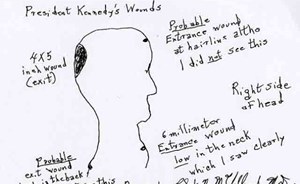 President Kennedy's Wounds
4X5
inch wound
(exit)
Probable
Entrance wound
at hairline altho
I did not see this
Right side
of head
6 millimeter
Entrance wound
low in the neck
which I saw clearly
Probable
exit wound
in the back
this